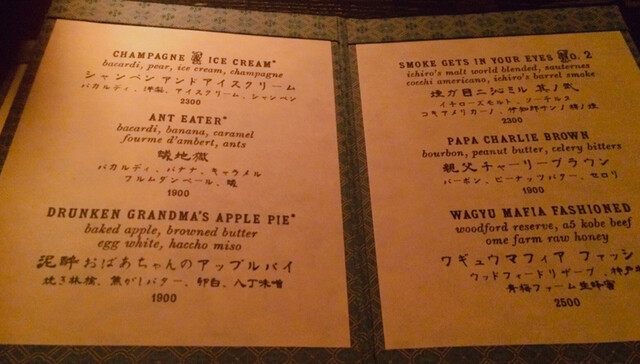 CHAMPAGNE ICE CREAM*
bacardi, pear, ice cream, champagne
シャンペン アンド アイスクリーム
バカルディ、洋梨、アイスクリーム、シャンペン
2300
ANT EATER*
bacardi, banana, caramel
fourme d'ambert, ants
蟻地獄
バカルディ、バナナ、キャラメル
フルムダンベール、蟻
1900
DRUNKEN GRANDMA'S APPLE PIE*
baked apple, browned butter
egg white, haccho miso
泥酔おばあちゃんのアップルパイ
焼き林檎、焦がしバター、卵白、八丁味噌
1900
SMOKE GETS IN YOUR EYES NO. 2
ichiro's malt world blended, sauternes
cocchi americano, ichiro's barrel smoke
煙ガ目ニシミル 其ノ弐
イチローズモルト、ソーテルヌ
コキアメリカーノ、
2300
PAPA CHARLIE BROWN
bourbon, peanut butter, celery bitters
親父チャーリーブラウン
バーボン、ピーナッツバター、セロリ
1900
WAGYU MAFIA FASHIONED
woodford reserve, a5 kobe beef
ome farm raw honey
ワギュウマフィア ファッシ
ウッドフォードリザーブ、神戸
青梅ファーム生蜂蜜
2500